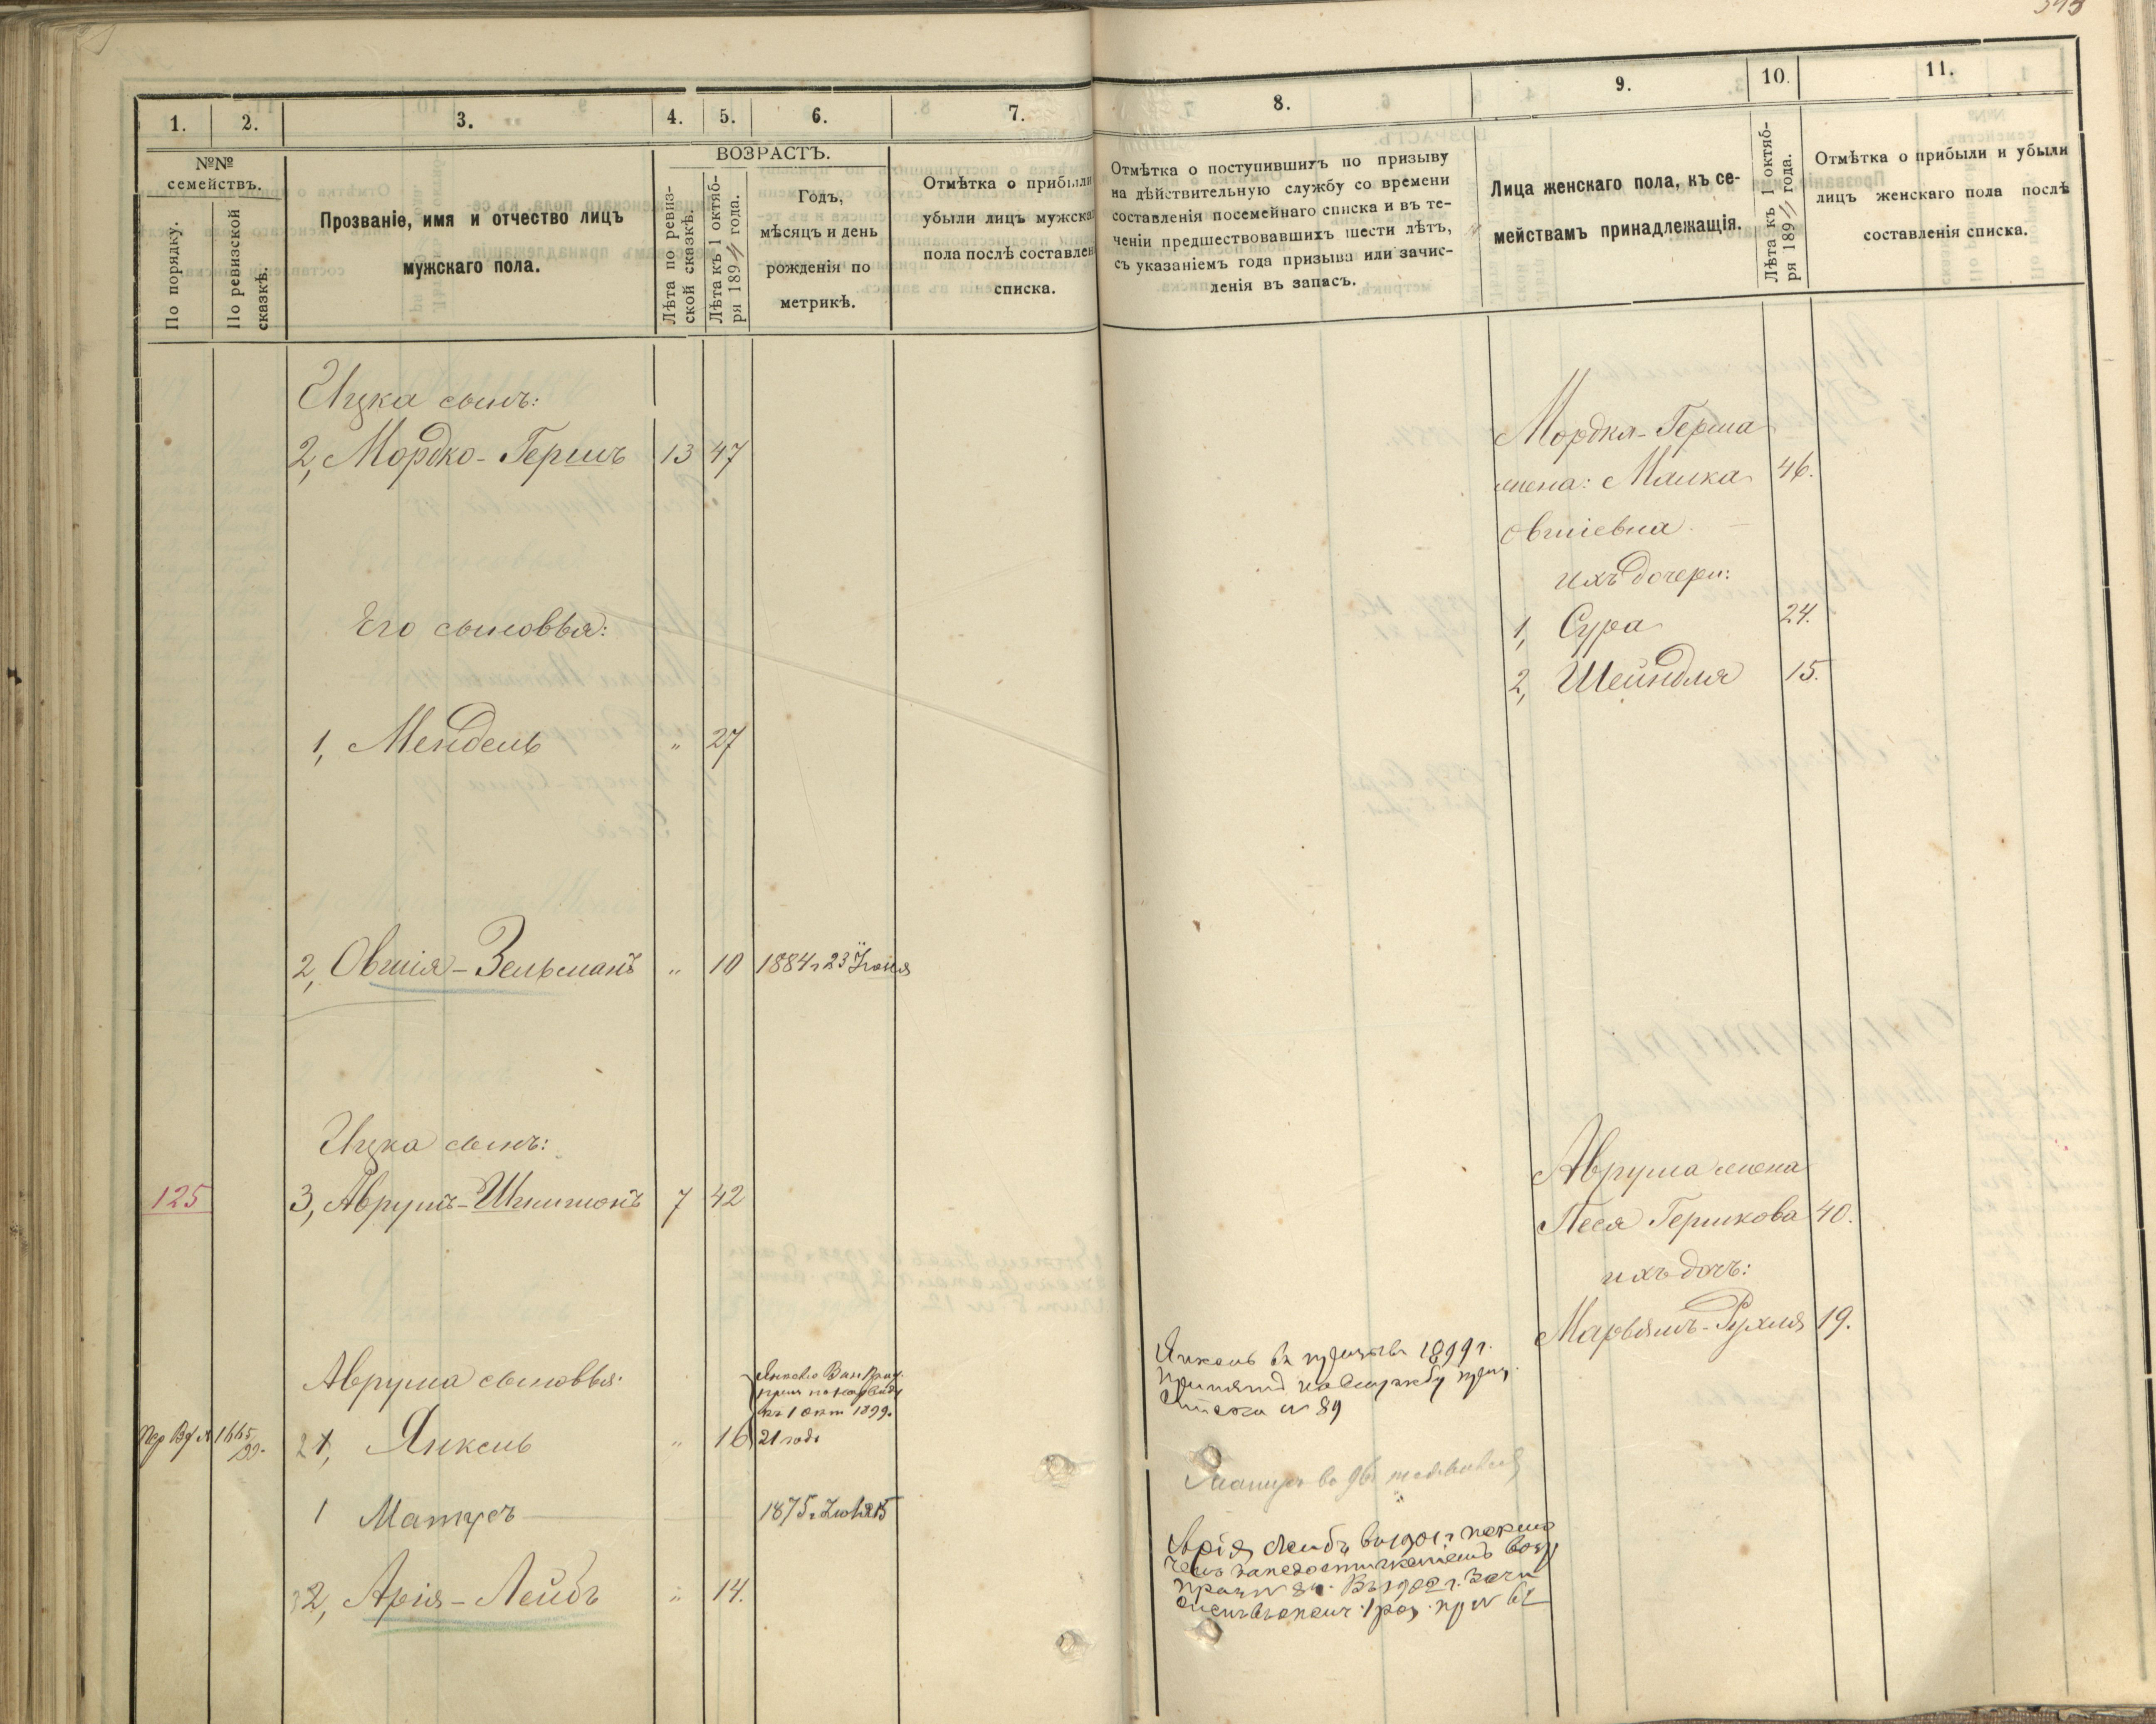 1.
2.
3.
4.
5.
6.
7.
№№
семействъ.
По порядку.
По ревизской
сказкѣ.
Прозваніе, имя и отчество лицъ
мужскаго пола.
ВОЗРАСТЪ.
Лѣта по ревиз-
ской сказкѣ.
Лѣта къ 1 октяб-
ря 189 года.
Годъ,
мѣсяцъ и день
рожденія по
метрикѣ.
Отмѣтка о прибыли
убыли лицъ мужска
пола послѣ составлен
списка.
Ицка сынъ:
2, Мордко-Гершъ 13 47
Его сыновья:
1, Мендель " 27
2, Овшія-Зельманъ " 10 1884 г 23 Іюня
Ицка сынъ:
125 3, Аврумъ-Шлимонъ 7 42
Аврума сыновья:
къ 1 окт 1899.
1665
99.
21, Янкель " 16 21 годъ
1 Матусъ 1875 г.
32, Арія-Лейбъ " 14.
8.
9.
10.
11.
Отмѣтка о поступившихъ по призыву
на дѣйствительную службу со времени
составленія посемейнаго списка и въ те-
ченіи предшествовавшихъ шести лѣтъ,
съ указаніемъ года призыва или зачис-
ленія въ запасъ.
Лица женскаго пола, къ се-
мействамъ принадлежащія.
Лѣта къ 1 октяб-
ря 189 года.
Отмѣтка о прибыли и убыли
лицъ женскаго пола послѣ
составленія списка.
Мордка-Герша
жена: Малка 46.
Овшіевна
ихъ дочери:
1, Сура 24.
2, Шейндля 15.
Аврума жена
Песя Гершкова 40.
ихъ дочь:
Марьямъ-Рухля 19.
Янкель въ призывъ 1899 г.
принятъ на службу приз.
списка № 89
Арія Лейбъ въ 1901 г.
Въ 1902 г.